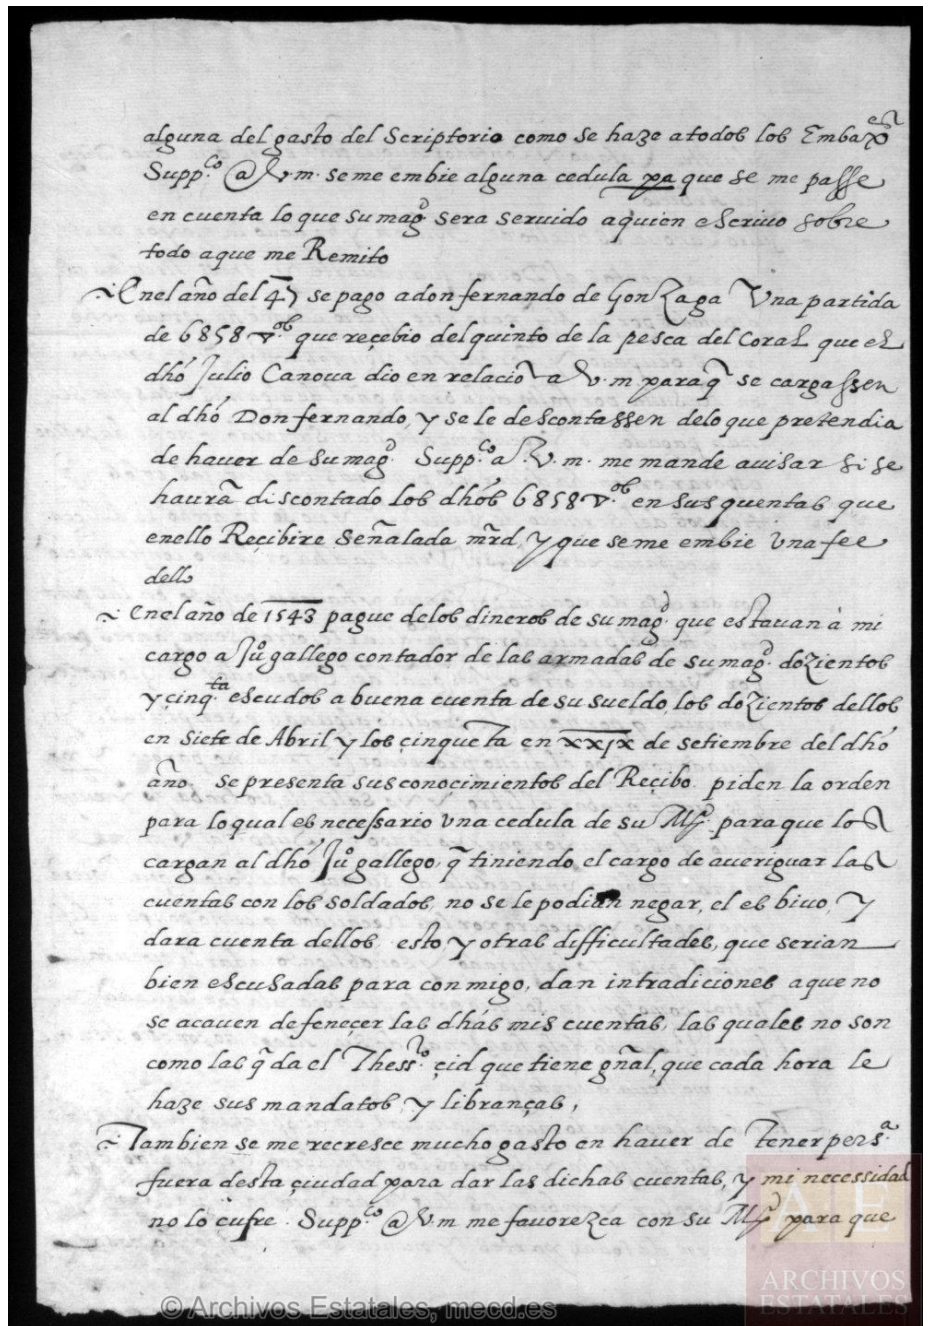 alguna del gasto del Scriptorio como se haze a todos los Embax.es
Supp.co a V. m. se me embie alguna cedula pa que se me passe
en cuenta lo que su mag.d sera servido a quien escrivo sobre
todo a que me Remito
En el año del 47 se pago a don fernando de Gonzaga Una partida
de 6858 V.os que recebio del quinto de la pesca del Coral que el
dho Julio Canova dio en relacion a V. m para q se cargassen
al dho Don fernando, y se le descontassen delo que pretendia
de haver de su mag.d Supp.co a V. m. me mande avisar si se
havra discontado los dhos 6858 V.os en sus quentas que
en ello Reçibire señalada mrd, y que se me embie Una fee
dello
En el año de 1543 pague delos dineros de su mag.d que estavan à mi
cargo a Ju.o gallego contador de las armadas de su mag.d dozientos
y çinq.ta escudos a buena cuenta de su sueldo, los dozientos dellos
en siete de Abril y los çinqueta en xxjx de setiembre del dho
año, se presenta sus conocimientos del Reçibo piden la orden
para lo qual es necessario una cedula de su Mg.d para que los
cargan al dho Ju.o gallego, q tiniendo el cargo de averiguar las
cuentas con los soldados, no se le podian negar, el es bivo, y
dara cuenta dellos, esto, y otras difficultades, que serian
bien escusadas para conmigo, dan intradiciones a que no
se acaven de feneçer las dhas mis cuentas, las quales no son
como las q da el Thess.ro çid que tiene gñal, que cada hora le
haze sus mandatos, y libranças,
Tambien se me recresce mucho gasto en haver de tener pers.a
fuera desta çiudad para dar las dichas cuentas, y mi necessidad
no lo çufre. Supp.co a V m me favorezca con su Mg.d para que
© Archivos Estatales, mecd.es
AE
ARCHIVOS
ESTATALES